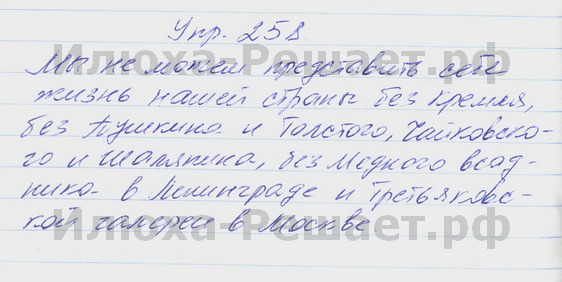 Упр. 258.
Мы не можем представить себе
жизнь нашей страны без Кремля,
без Пушкина и Толстого, Чайковско-
го и Шаляпина, без Медного всад-
ника в Ленинграде и Третьяковс-
кой галереи в Москве
Илюха-Решает.рф
Илюха-Решает.рф
Илюха-Решает.рф